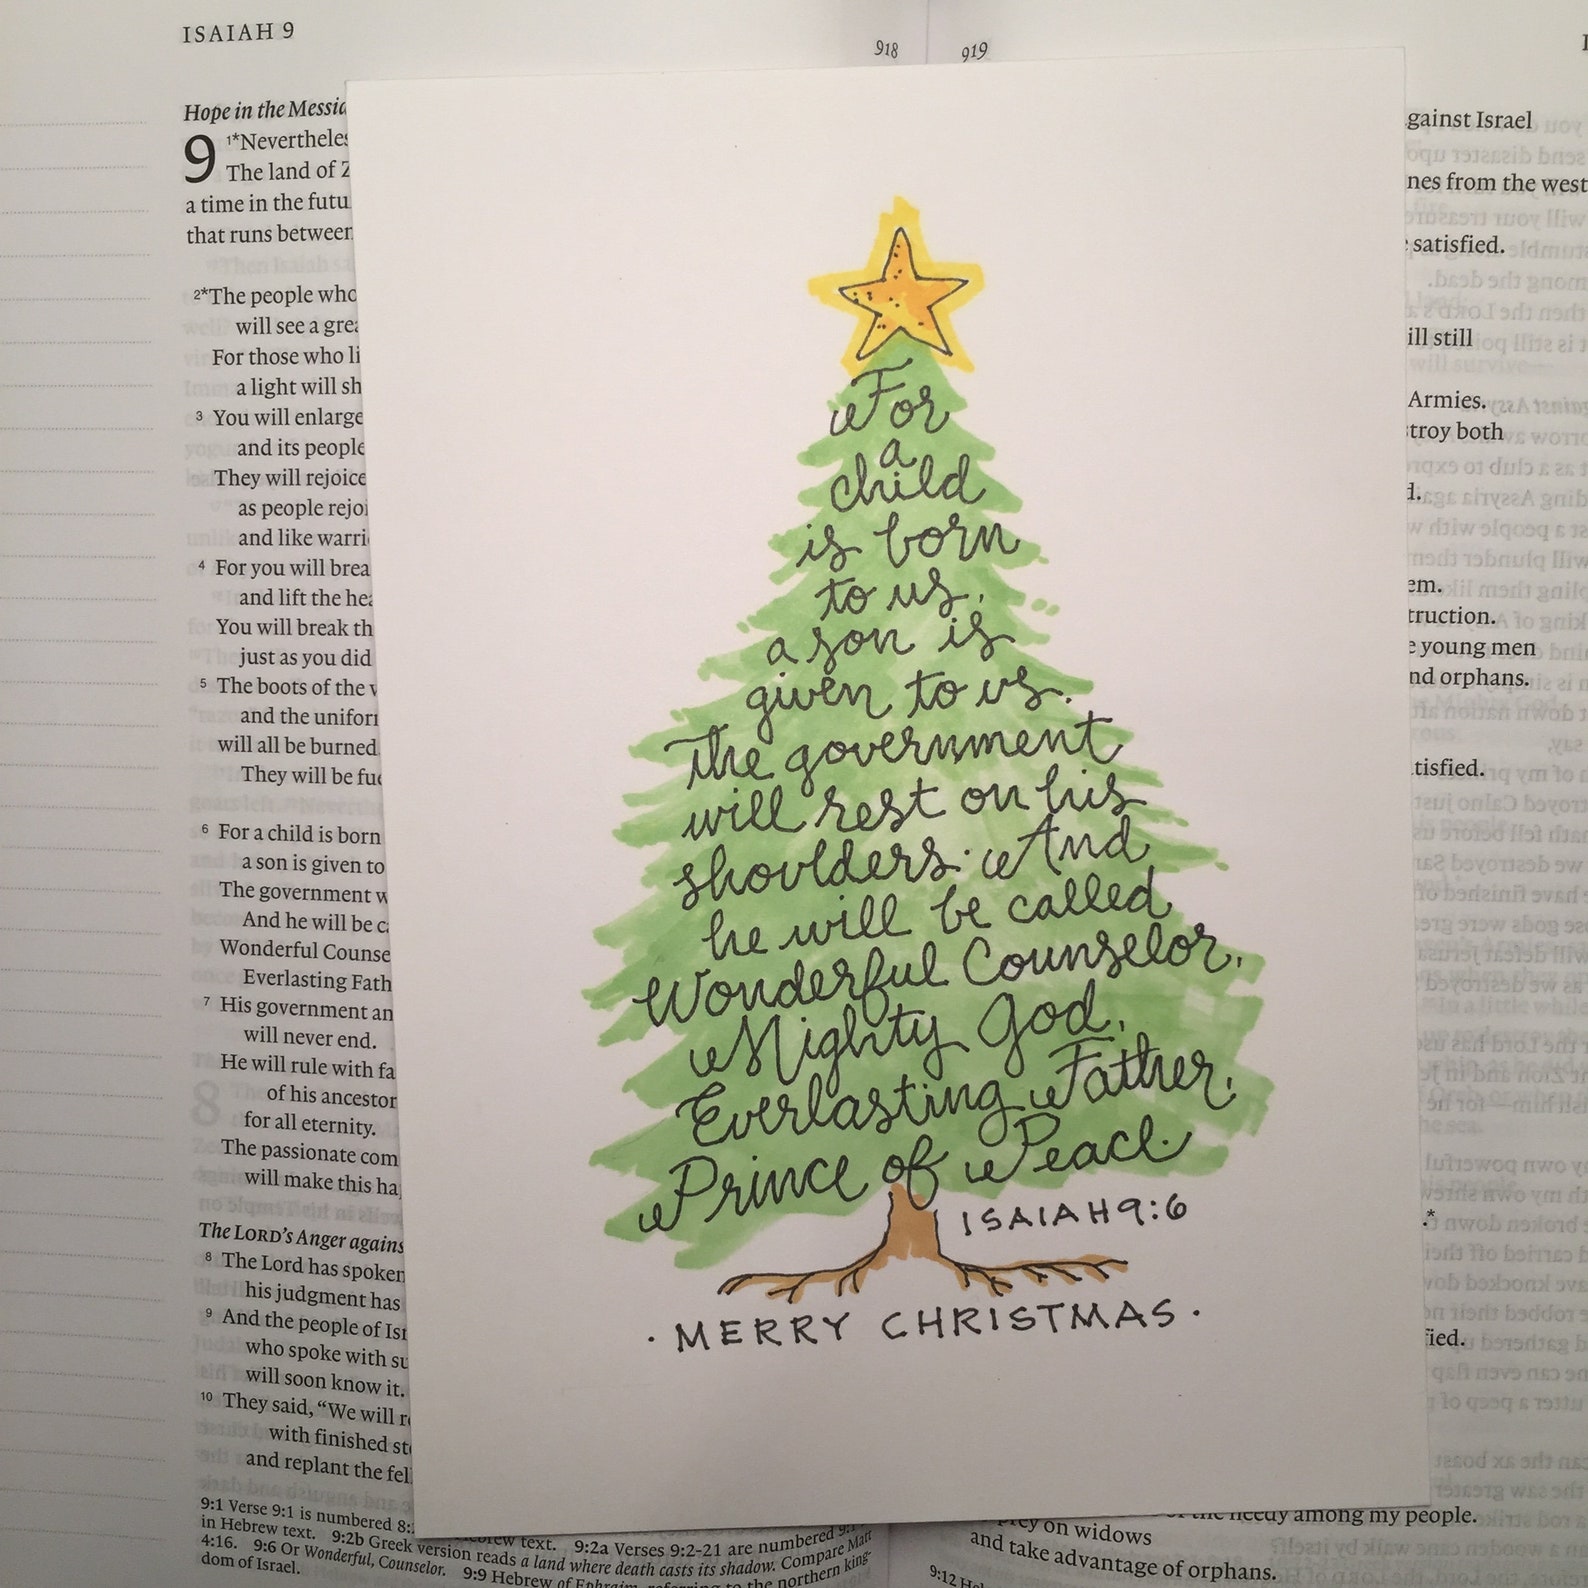 ISAIAH 9
918
919
Hope in the Messia
9 1*Nevertheles
The land of Z
a time in the futu
that runs between
2*The people who
will see a grea
For those who li
a light will sh
3 You will enlarge
and its people
They will rejoice
as people rejoi
and like warri
4 For you will brea
and lift the hea
You will break th
just as you did
5 The boots of the w
and the unifor
will all be burned
They will be fue
6 For a child is born
a son is given to
The government w
And he will be c
Wonderful Counse
Everlasting Fath
7 His government an
will never end.
He will rule with fa
of his ancestor
for all eternity.
The passionate com
will make this ha
The LORD's Anger agains
8 The Lord has spoken
his judgment has
9 And the people of Isr
who spoke with su
will soon know it.
10 They said, "We will r
with finished sto
and replant the fel
9:1 Verse 9:1 is numbered 8:
in Hebrew text. 9:2b Greek version reads a land where death casts its shadow. Compare Matt
4:16. 9:6 Or Wonderful, Counselor. 9:9 Hebrew of Ephraim, referring to the northern king-
dom of Israel.
brew text. 9:2a Verses 9:2-21 are numbered 9:1-
For
a
child
is born
to us,
a son is
given to us.
The government
will rest on his
shoulders. And
he will be called
Wonderful Counselor,
Mighty God,
Everlasting Father,
Prince of Peace.
ISAIAH 9:6
· MERRY CHRISTMAS ·
gainst Israel
nes from the west
satisfied.
ill still
Armies.
troy both
d.
em.
truction.
e young men
nd orphans.
tisfied.
.*
fied.
the needy among my people.
prey on widows
and take advantage of orphans.
9:12